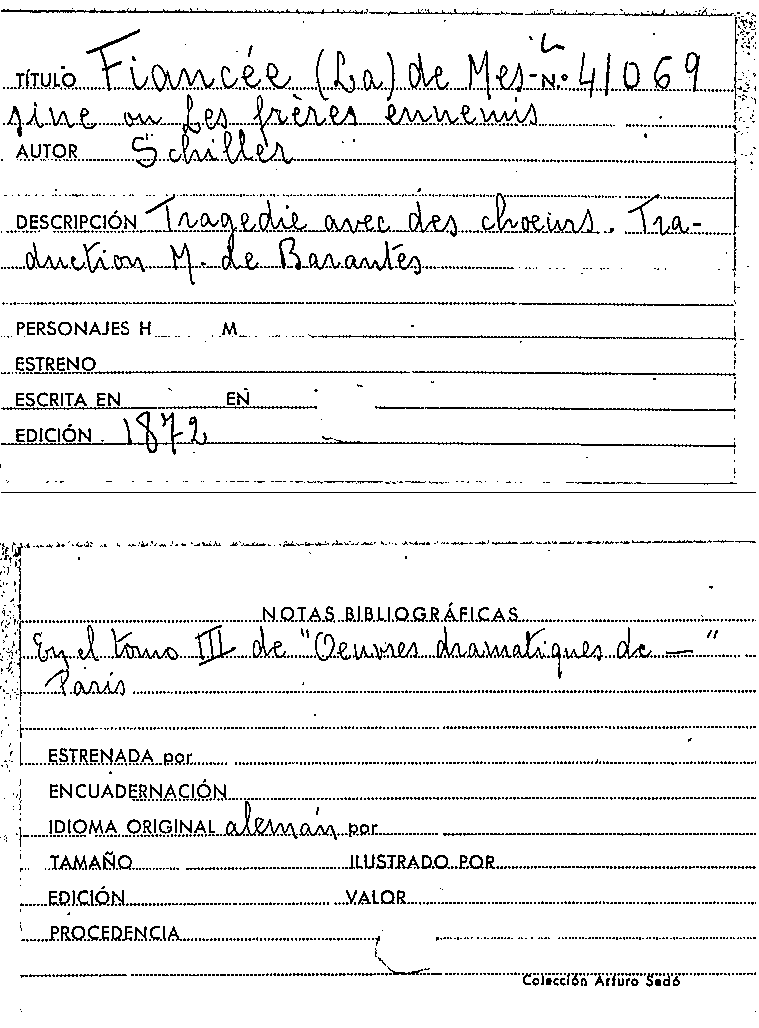 TÍTULO Fiancée (La) de Mes- N.º 41069
sine ou Les frères ennemis
AUTOR Schiller
DESCRIPCIÓN Tragedie avec des choeurs. Tra-
duction M. de Barantes
PERSONAJES H M
ESTRENO
ESCRITA EN EN
EDICIÓN 1872
NOTAS BIBLIOGRÁFICAS
En el tomo III de "Oeuvres dramatiques de — "
Paris
ESTRENADA por
ENCUADERNACIÓN
IDIOMA ORIGINAL alemán por
TAMAÑO ILUSTRADO POR
EDICIÓN VALOR
PROCEDENCIA
Colección Arturo Sedó